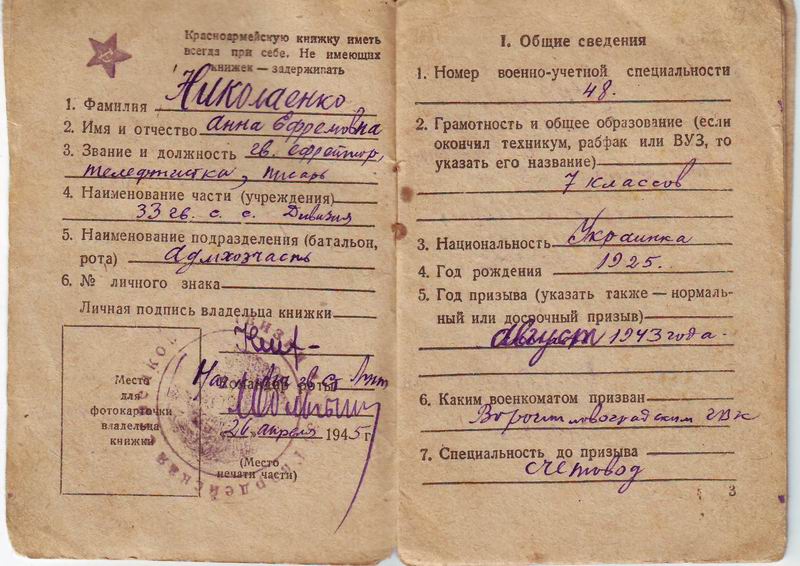 Красноармейскую книжку иметь
всегда при себе. Не имеющих
книжек — задерживать
1. Фамилия Николаенко
2. Имя и отчество Анна Ефремовна
3. Звание и должность гв. ефрейтор,
писарь
4. Наименование части (учреждения)
33 гв. с. с. Дивизия
5. Наименование подразделения (батальон,
рота) Админхозчасть
6. № личного знака
Личная подпись владельца книжки
Командир роты
26 апреля 1945 г.
Место
для
фотокарточки
владельца
книжки
(Место
печати части)
I. Общие сведения
1. Номер военно-учетной специальности
48.
2. Грамотность и общее образование (если
окончил техникум, рабфак или ВУЗ, то
указать его название)
7 классов
3. Национальность Украинка
4. Год рождения 1925.
5. Год призыва (указать также — нормаль-
ный или досрочный призыв)
август 1943 года.
6. Каким военкоматом призван
Ворошиловоградским ГВК
7. Специальность до призыва
счетовод
3